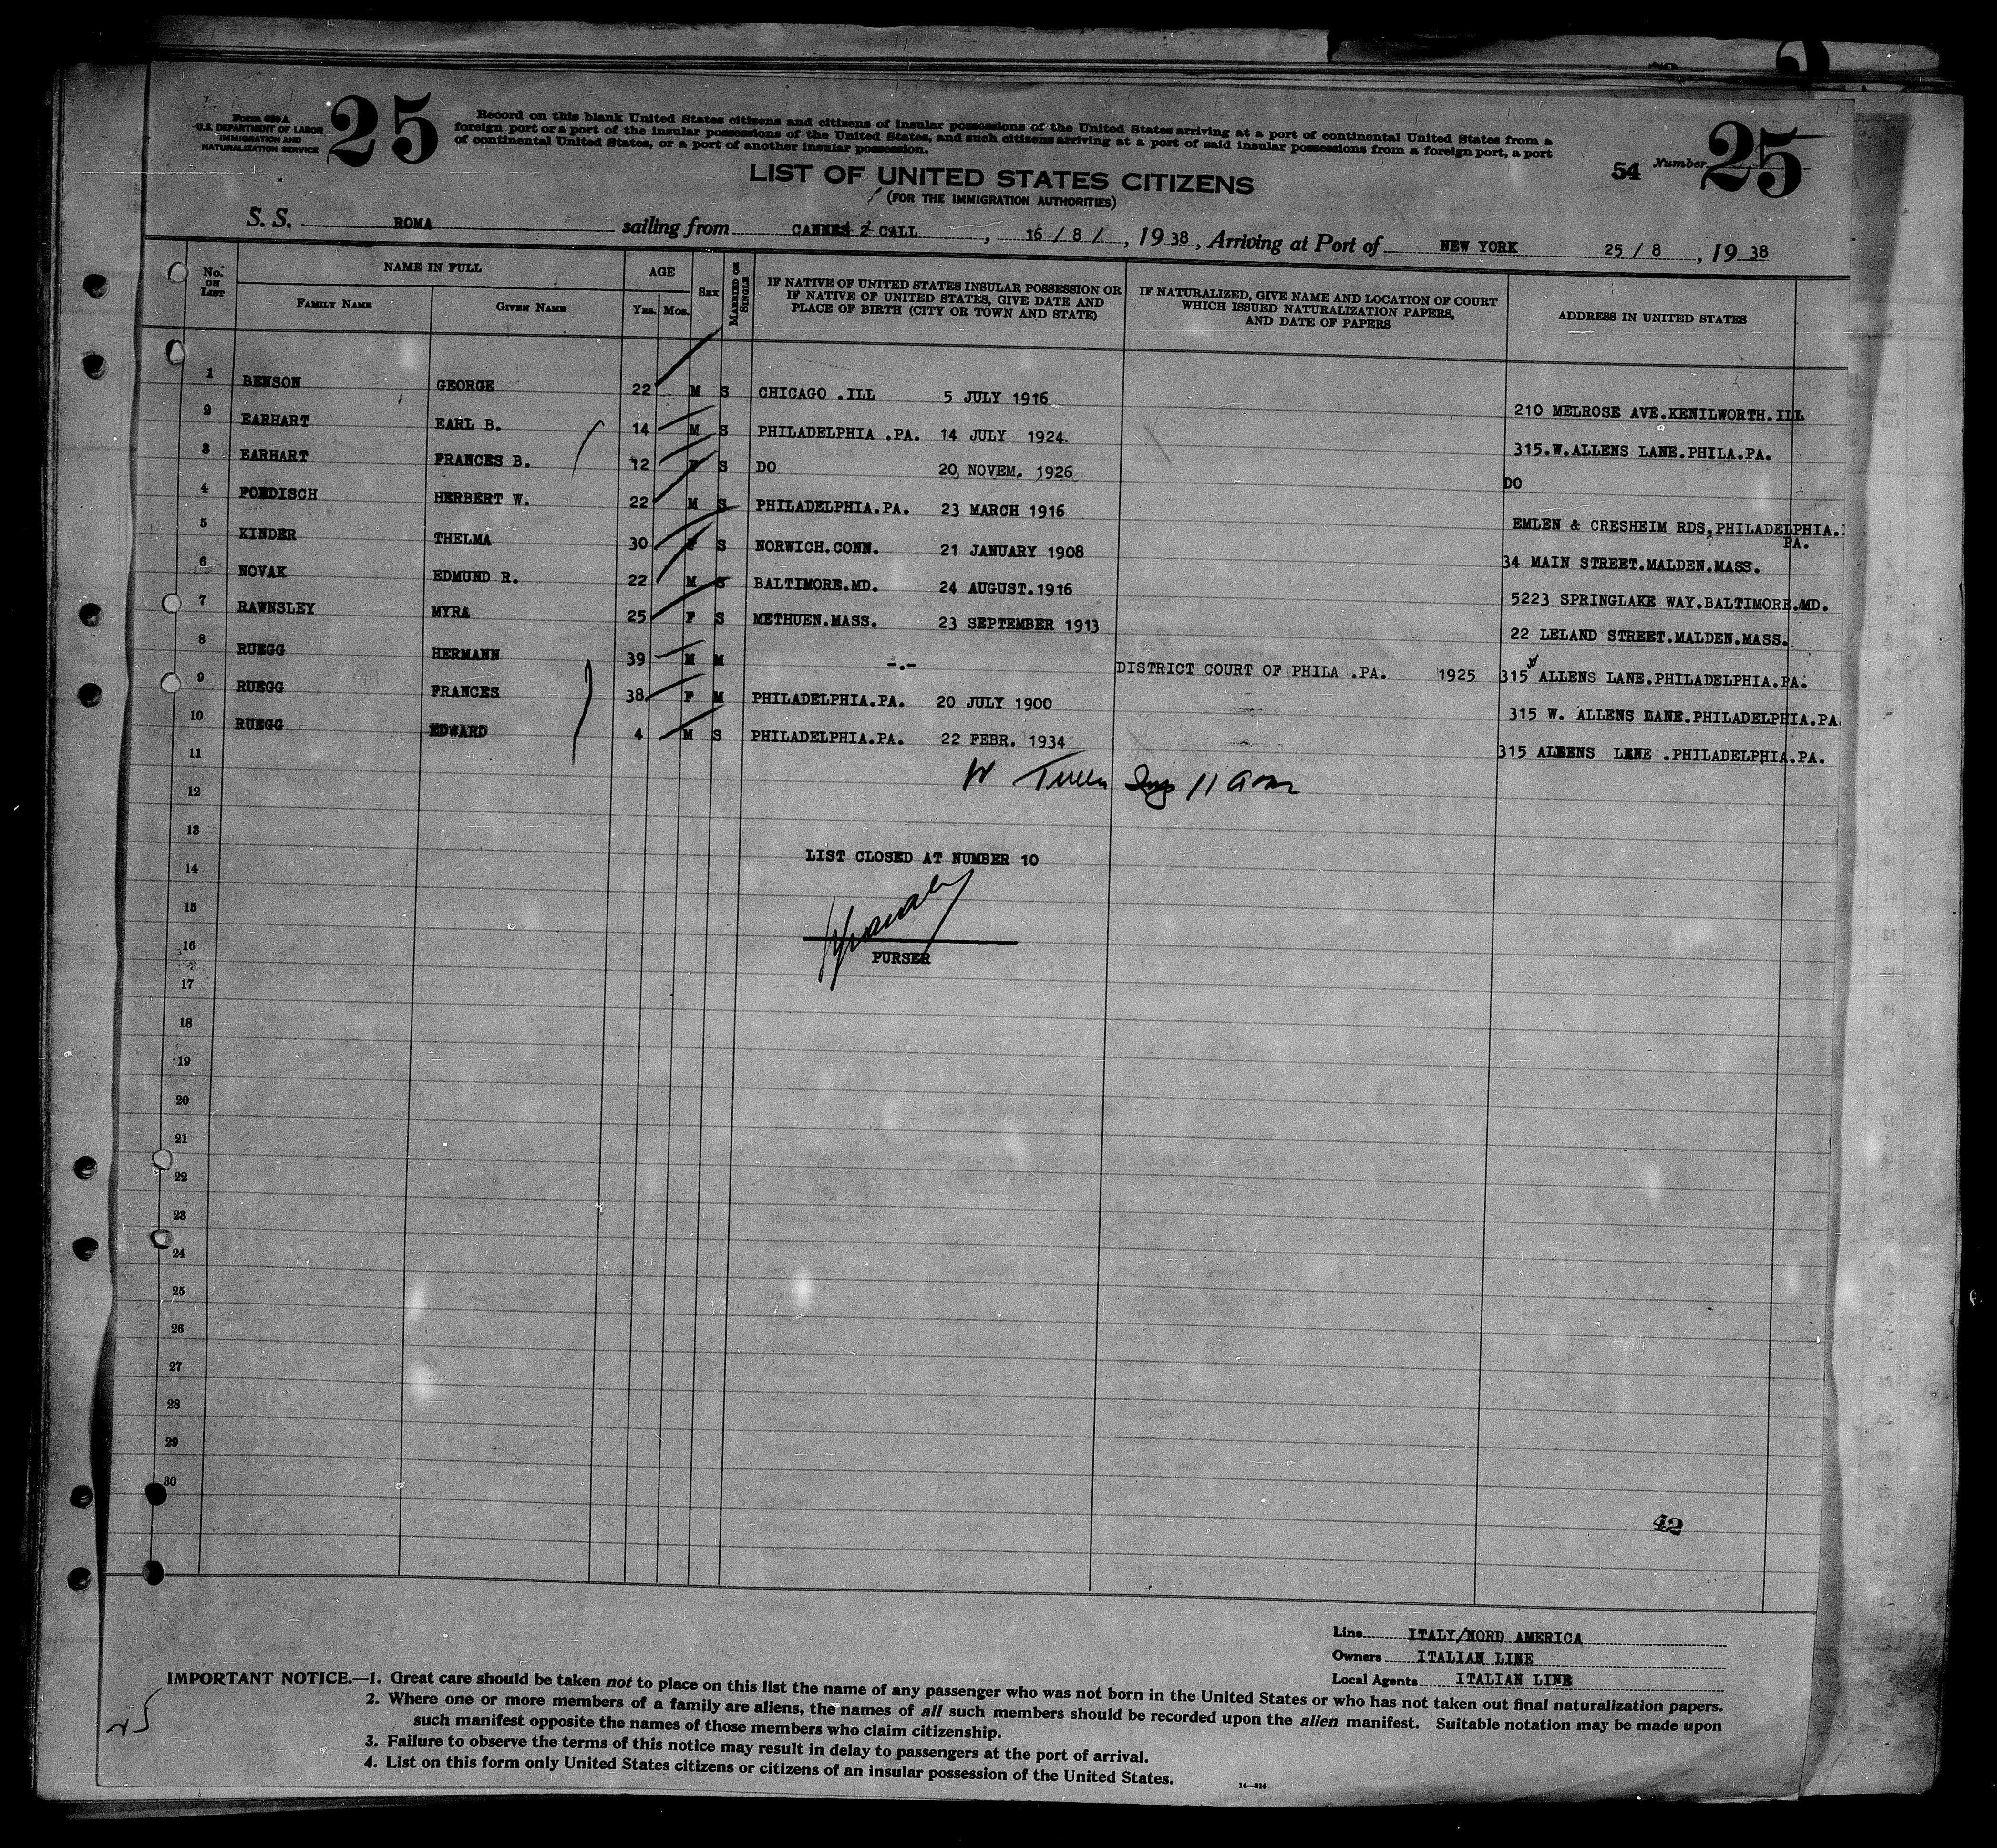 Form 630 A
U.S. DEPARTMENT OF LABOR
IMMIGRATION AND
NATURALIZATION SERVICE
25
Record on this blank United States citizens and citizens of insular possessions of the United States arriving at a port of continental United States from a
foreign port or a port of the insular possessions of the United States, and such citizens arriving at a port of said insular possessions from a foreign port, a port
of continental United States, or a port of another insular possession.
54 Number 25
LIST OF UNITED STATES CITIZENS
(FOR THE IMMIGRATION AUTHORITIES)
S. S. ROMA sailing from CANNES 2 CALL, 16 / 8 /, 1938, Arriving at Port of NEW YORK 25 / 8, 1938
No. ON LIST
NAME IN FULL
FAMILY NAME
GIVEN NAME
AGE
Yrs. Mos.
SEX
MARRIED OR SINGLE
IF NATIVE OF UNITED STATES INSULAR POSSESSION OR
IF NATIVE OF UNITED STATES, GIVE DATE AND
PLACE OF BIRTH (CITY OR TOWN AND STATE)
IF NATURALIZED, GIVE NAME AND LOCATION OF COURT
WHICH ISSUED NATURALIZATION PAPERS,
AND DATE OF PAPERS
ADDRESS IN UNITED STATES
1 BENSON GEORGE 22 M S CHICAGO .ILL 5 JULY 1916 210 MELROSE AVE.KENILWORTH.ILL
2 EARHART EARL B. 14 M S PHILADELPHIA .PA. 14 JULY 1924. 315.W.ALLENS LANE.PHILA.PA.
3 EARHART FRANCES B. 12 F S DO 20 NOVEM. 1926 DO
4 FORDISCH HERBERT W. 22 M S PHILADELPHIA.PA. 23 MARCH 1916 EMLEN & CRESHEIM RDS.PHILADELPHIA.
PA.
5 KINDER THELMA 30 F S NORWICH.CONN. 21 JANUARY 1908 34 MAIN STREET.MALDEN.MASS.
6 NOVAK EDMUND R. 22 M S BALTIMORE.MD. 24 AUGUST.1916 5223 SPRINGLAKE WAY.BALTIMORE.MD.
7 RAWNSLEY MYRA 25 F S METHUEN.MASS. 23 SEPTEMBER 1913 22 LELAND STREET.MALDEN.MASS.
8 RUEGG HERMANN 39 M M -.- DISTRICT COURT OF PHILA .PA. 1925 315 W ALLENS LANE.PHILADELPHIA.PA.
9 RUEGG FRANCES 38 F M PHILADELPHIA.PA. 20 JULY 1900 315 W. ALLENS LANE.PHILADELPHIA.PA.
10 RUEGG EDWARD 4 M S PHILADELPHIA.PA. 22 FEBR. 1934 315 ALLENS LANE .PHILADELPHIA.PA.
11
12
13
LIST CLOSED AT NUMBER 10
14
15
16
PURSER
17
18
19
20
21
22
23
24
25
26
27
28
29
30
42
Line ITALY/NORD AMERICA
Owners ITALIAN LINE
Local Agents ITALIAN LINE
IMPORTANT NOTICE.—1. Great care should be taken not to place on this list the name of any passenger who was not born in the United States or who has not taken out final naturalization papers.
2. Where one or more members of a family are aliens, the names of all such members should be recorded upon the alien manifest. Suitable notation may be made upon
such manifest opposite the names of those members who claim citizenship.
3. Failure to observe the terms of this notice may result in delay to passengers at the port of arrival.
4. List on this form only United States citizens or citizens of an insular possession of the United States.
14—814
25